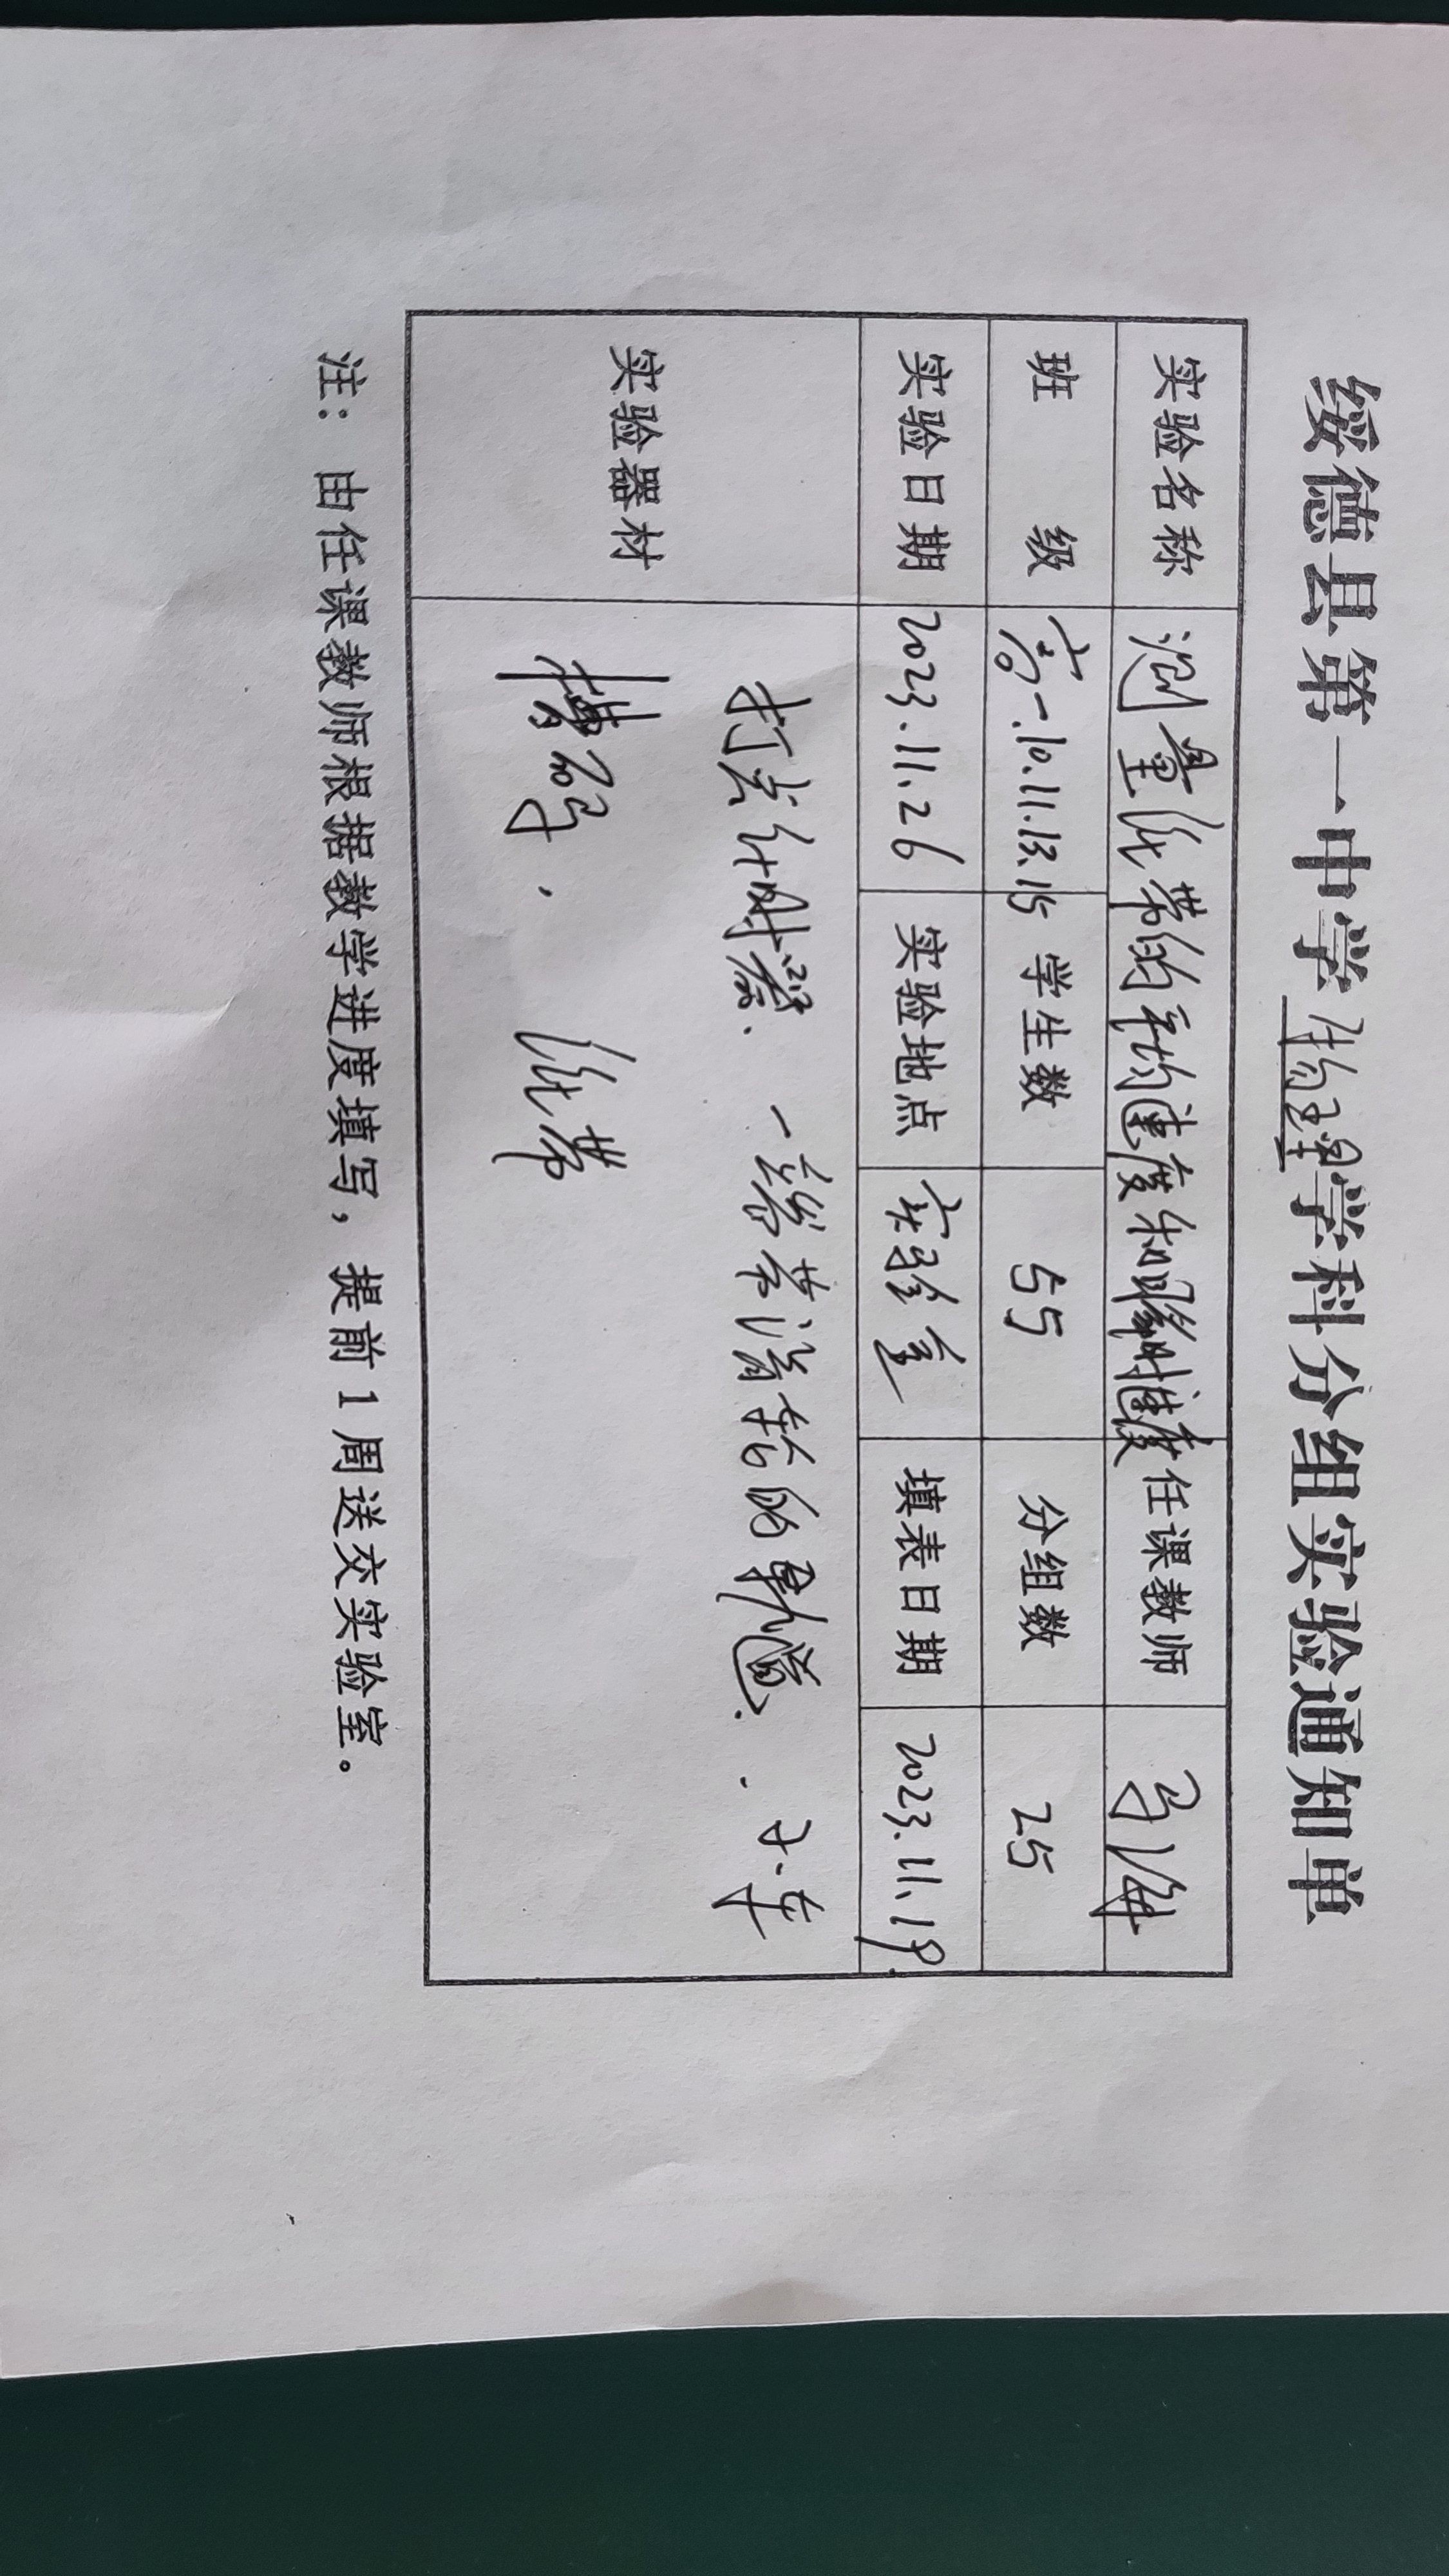 绥德县第一中学物理学科分组实验通知单
实验名称 测量纸带的平均速度和瞬时速度 任课教师 马
班 级 高一.10.11.13.15 学生数 55 分组数 25
实验日期 2023.11.26 实验地点 实验室 填表日期 2023.11.19
实验器材 打点计时器、一端带滑轮的轨道、小车
槽码、纸带
注：由任课教师根据教学进度填写，提前1周送交实验室。